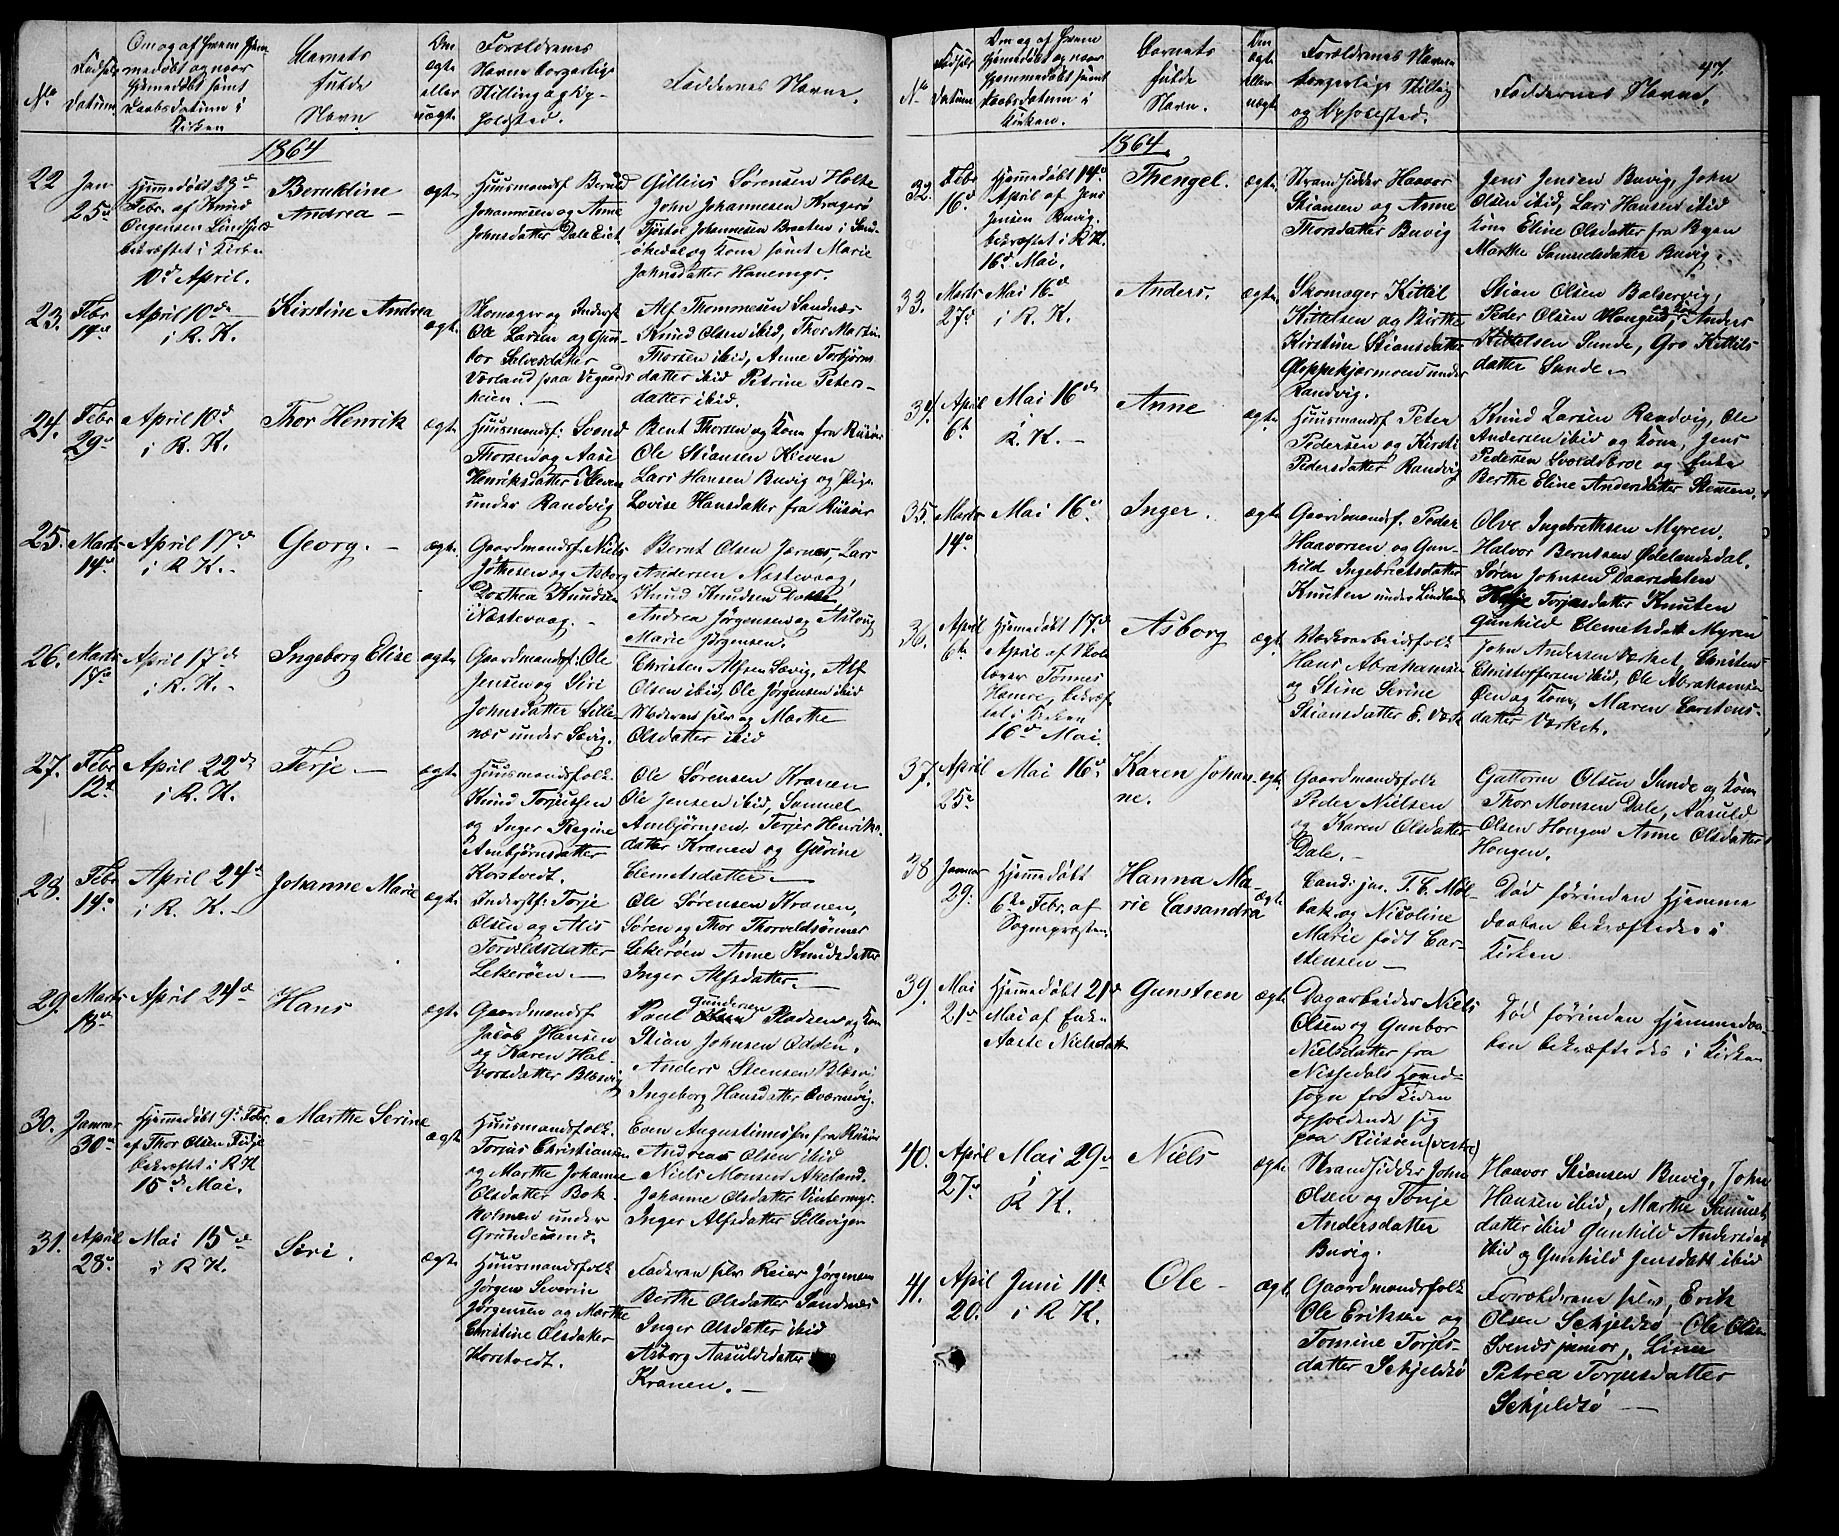 No
Fødsels
Datum
Om og af Hvem hjem-
medøbt og naar
hjemmedøbt samt
Daabsdatum i
Kirken
Barnets
fulde
Navn
Om
ægte
eller
uægte
Forældrenes
Navne borgerlige
Stilling og Op-
holdsted.
Faddernes Navne.
1864
22
Jan
25de
Hjemmedøbt
Febr. af Knud
bekræftet i Kirken
10de April.
Berntine
Andrea
ægte
Huusmandsf.
Johannesen og Anne
Johnsdatter Dale Eiet
Sørensen Holte
John Johannesen Kragerø
Johannesen Braaten i
og Kone samt Marie
Johnsdatter
23.
Febr
14de
April 10de
i R. K.
Kirstine Andrea
ægte
Skomager og Inderst
Ole Larsen og Gun-
bor
Værland paa Vegaards
heien.
Alf Thommesen Sandnæs
Knud Olsen ibid, Thor Martin
Thorsen ibid, Anne Torbjørns
datter ibid Petrine Peter-
datter ibid.
24.
Febr
29de
April 10de
i R. K.
Thor Henrik
ægte
Huusmandsf: Svend
Thorsen og Aase
Henriksdatter Kleven
under Randvig
Bent Thorsen og Kone fra Risør
Ole Stiansen Kleven
Lars Hansen Buvig og Pige
Lovise Hansdatter fra Risør
25.
Marts
14de
April 17de
i R. K.
Georg.
ægte
Gaardmandsf. Niels
og Asborg
Dorthea Knudsen
Næstevaag.
Bernt Olsen Jernes, Lars
Andersen Næstevaag,
Knud Knudsen
Andrea Jørgensen og Aslaug
Marie Jørgensen.
26.
Marts
17de
April 17de
i R. K.
Ingeborg Elise
ægte
Gaardmandsf: Ole
Jensen og Siri
Johnsdatter Sille-
næs under Søvig.
Christen Alfsen Søvig, Alf
Olsen ibid, Ole Jørgensen ibid
Moderen selv og Marthe
Olsdatter ibid
27.
Febr
12te
April 22de
i R. K.
Terje
ægte
Huusmandsfolk
Knud Torjussen
og Inger Regine
Ambjørnsdatter
Korstvedt.
Ole Sørensen Kranen
Ole Jensen ibid, Samuel
Ambjørnsen, Torjer Henriks-
datter Kranen og Gurine
Clemetsdatter.
28.
Febr
14de
April 24de
i R. K.
Johanne Marie
ægte
Inderstf: Torje
Olsen og Alis
Torvaldsdatter
Lekerøen.
Ole Sørensen Kranen,
Søren og Thor Thorvaldsønner
Lekerøen Anne Knudsdatter
Inger Alfsdatter.
29.
Marts
18de
April 24de
Hans
ægte
Gaardmandsf
Jacob Hansen
og Karen Hal-
vorsdatter Blæsvig
Paul Gundersen Pladsen og Kone
Stian Johnsen Odden.
Anders Steensen Blæsvig
Ingeborg Hansdatter Qværnvig.
30.
Januar
30te
Hjemmedøbt 9de Febr.
af Thor Olsen Fidje
bekræftet i R K
15de Mai.
Marthe Serine
ægte
Huusmandsfolk
Torjus Christiansen
og Marthe Johanne
Olsdatter Bok-
holmen under
Grundesund.
Even Augustinussen fra Risør
Andreas Olsen ibid
Niels Monsen Akeland.
Johanne Olsdatter Vintermyr.
Inger Alfsdatter Sillevigen
31.
April
28de
Mai 15de
i R K.
Siri.
ægte
Huusmandsfolk
Jørgen Severin
Jørgensen og Marthe
Christine Olsdatter
Korstvedt.
Faderen selv Reier Jørgensen
Berthe Olsdatter Sandnæs
Inger Olsdatter ibid
Asborg Aasuldsdatter
Kranen.
47.
No
Fødsels
Datum
Om og af Hvem
hjemmedøbt og naar
hjemmedøbt samt
Daabsdatum i
Kirken.
Barnets
fulde
Navn.
Om
ægte
eller
uægte
Forældrenes Navne
borgerlige Stilling
og Opholdsted.
Faddernes Navne.
1864
32.
Febr
16de
Hjemmedøbt 14de
April af Jens
Jensen Buvig.
bekræftet i R K.
16de Mai.
Thengel.
ægte
Strandsidder Haavor
Stiansen og Anne
Thorsdatter Buvig
Jens Jensen Buvig, John
Olsen ibid, Lars Hansen ibid
Kone Eline Olsdatter fra Byen
Marthe Samuelsdatter Buvig.
33.
Marts
27de
Mai 16de
i R. K.
Anders.
ægte
Skomager Kittil
Kittelsen og Birthe
Kirstine Stiansdatter
Gloppekjermond under
Randvig.
Stian Olsen Balservig,
Peder Olsen Hougen og Kone, Anders
Kittelsen Sunde, Gro Kittils-
datter Sunde.
34.
April
6te
Mai 16de
R. K.
Anne
ægte
Huusmandsf. Peter
Pedersen og Kirsti
Pedersdatter Randvig
Knud Larsen Randvig, Ole
Andersen ibid og Kone, Jens
Pedersen Svoldsbroe og Enke
Berthe Eline Andersdatter Stemmen.
35.
Marts
14de
Mai 16de
Inger.
ægte
Gaardmandsf. Peder
Haavorsen og Gun-
hild Ingebretsdatter
Knuten under Lindland
Olve Ingebrethsen Myren.
Halvor Berntsen Ødelandsdal.
Søren Johnsen Daarsdalen
Torjusdatter Knuten
Gunhild Clemetsdatt Myren
36.
April
6te
Hjemmedøbt 17de
April af Skole
lærer Tønnes
Hamre, bekræf-
tet i Kirken
16de Mai.
Asborg
ægte
Værksarbeidsfolk
Hans Abrahamsen
og Stine Serine
Stiansdatter E. Værk
John Andersen Værket, Christen
Christoffersen ibid, Ole Abrahamsen
Øen og Kone, Maren Carstens-
datter Værket.
37.
April
25de
Mai 16de
Karen Johan-
ne.
ægte
Gaardmandsfolk
Peder Nielsen
og Karen Olsdatter
Dale.
Guttorm Olsen Sunde og Kone
Thor Monsen Dale, Aasuld
Olsen Hougen Anne Olsdatter
Hougen.
38
Januar
29.
Hjemmedøbt
6te Febr. af
Sognepræsten
Hanna Ma-
rie Cassandra
ægte
Cand: jur. T. C. Møl-
bak og Nicoline
Marie født Car-
stensen
Død førinden Hjemme
daaben bekræftedes i
Kirken
39.
Mai
21de
Hjemmedøbt 21de
Mai af Enke
Aaste Nielsdatt
Gunsteen
ægte
Dagarbeider Niels
Olsen og Gunbor
Nielsdatter fra
Nissedals Hoved-
sogn fra Tiden
opholdende sig
paa Risøen (vestre)
Død førinden Hjemmedaa-
ben bekræftedes i Kirken
40.
April
27de
Mai 29de
i
R K.
Niels
ægte
Strandsidder John
Olsen og Tonje
Andersdatter
Buvig.
Haavor Stiansen Buvig, John
Hansen ibid, Marthe Samuels
datter ibid Gunhild Andersdat
ibid og Gunhild Jensdatt ibid
41.
April
20.
Juni 11te
i R K.
Ole
ægte
Gaardmandsfolk
Ole Eriksen og
Tomine Torjus-
datter Skjeldsø
Forældrene selv, Erik
Olsen Skjeldsø Ole Olsen
Svends junior, Line
Petrea Torjusdatter
Skjeldsø